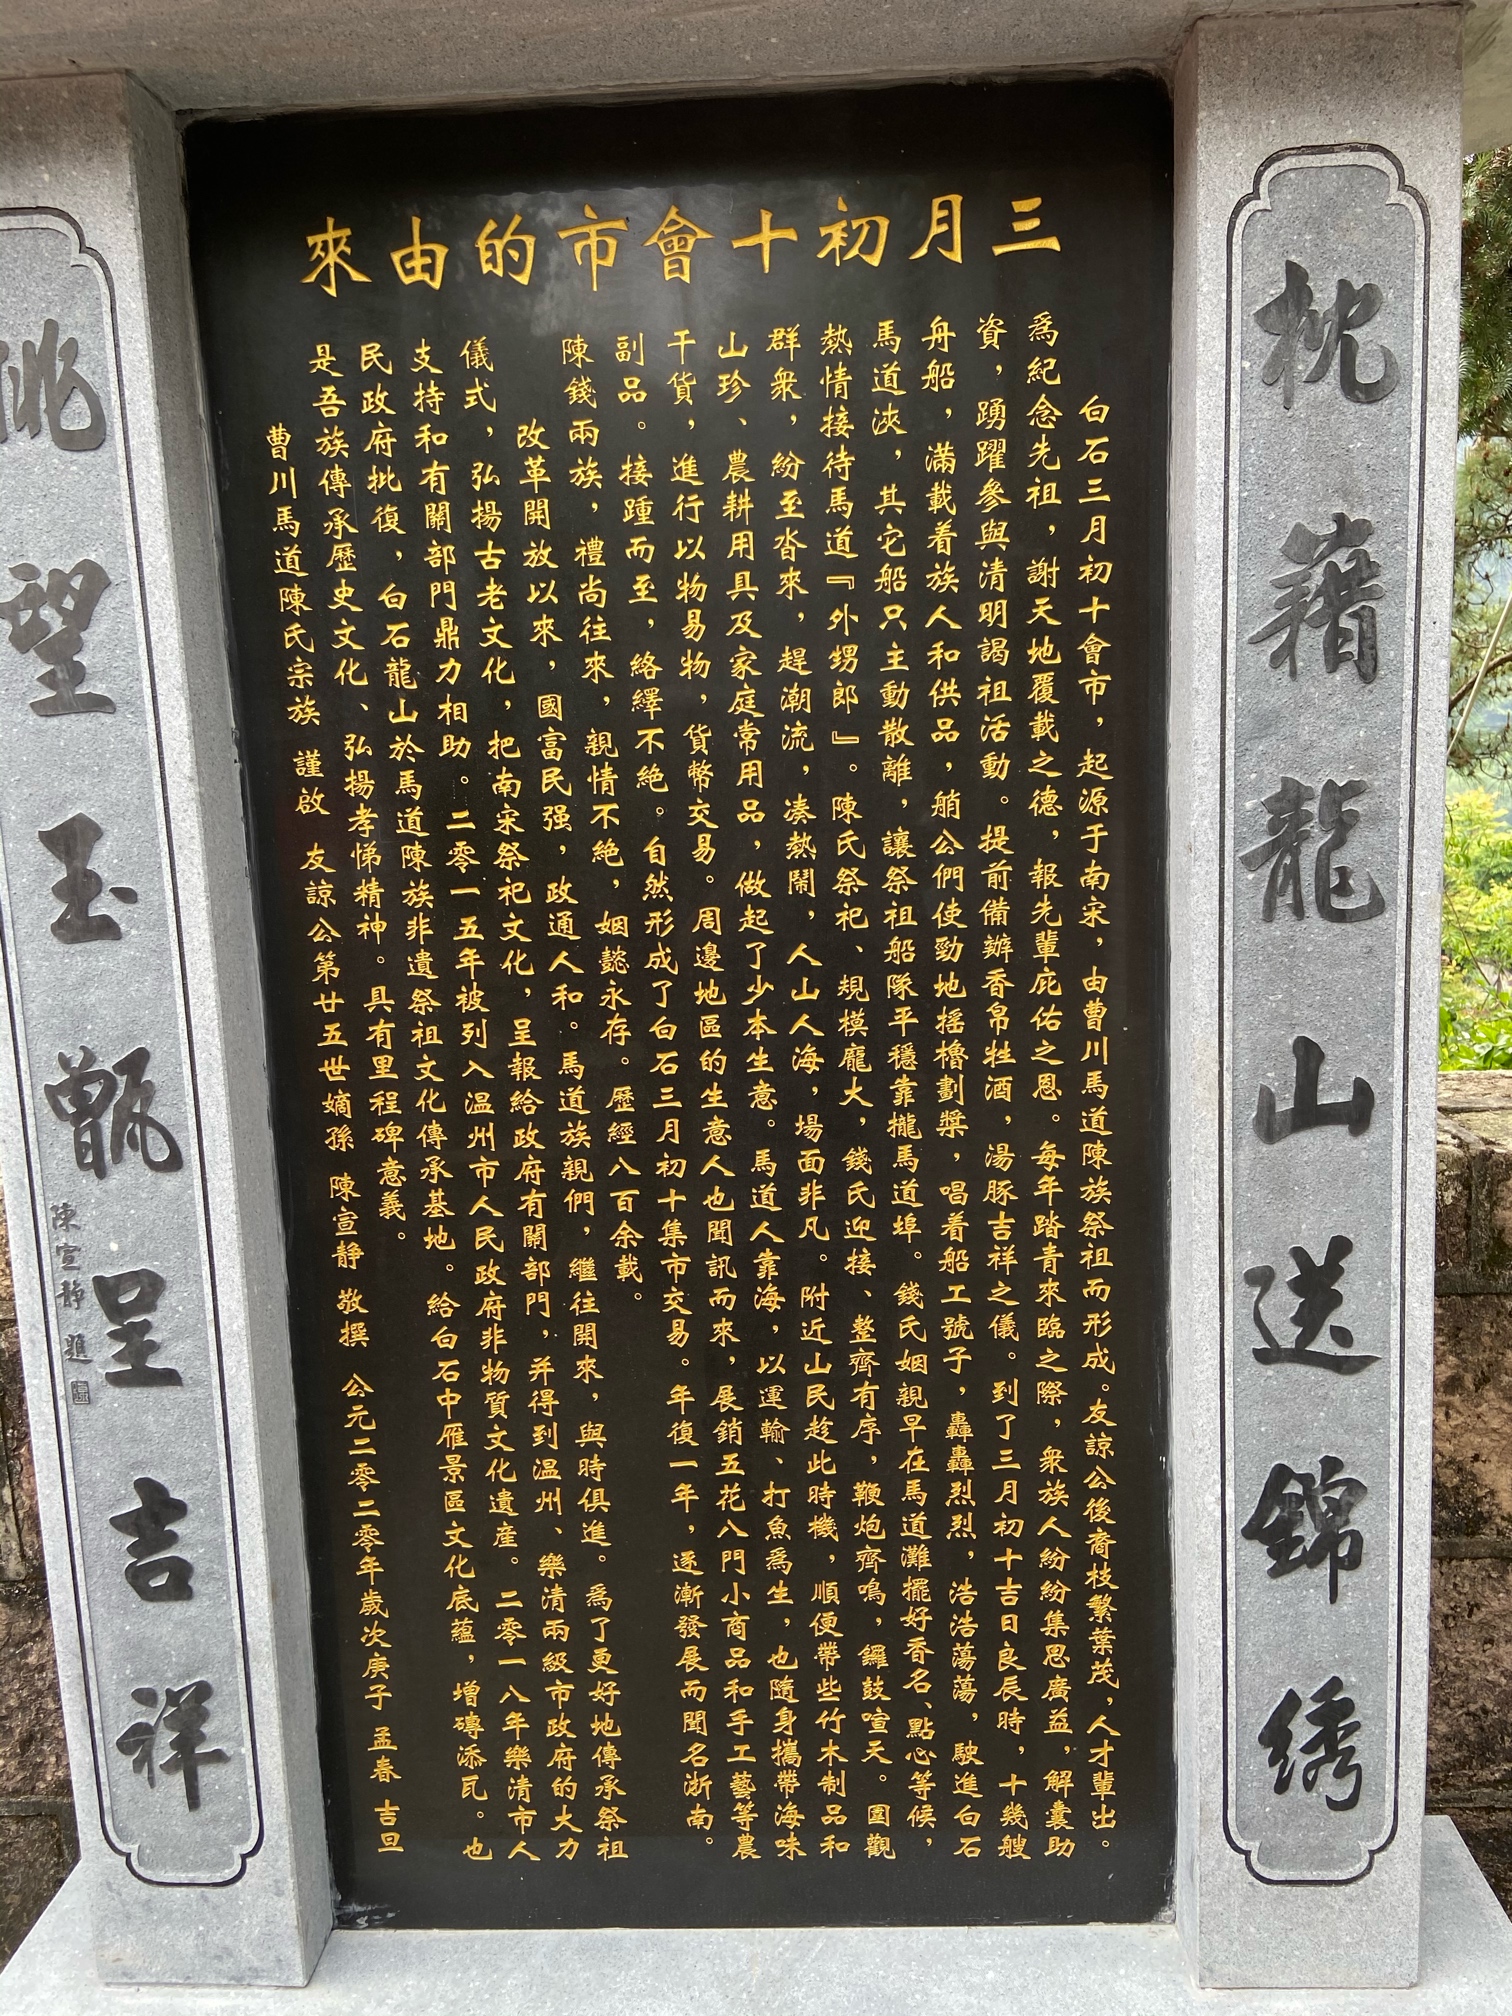 三月初十會市的由來
白石三月初十會市，起源于南宋，由曹川馬道陳族祭祖而形成。友諒公後裔枝繁葉茂，人才輩出。
爲紀念先祖，謝天地覆載之德，報先輩庇佑之恩。每年踏青來臨之際，衆族人紛紛集思廣益，解囊助
資，踴躍參與清明謁祖活動。提前備辦香帛牲酒，湯豚吉祥之儀。到了三月初十吉日良辰時，十幾艘
舟船，滿載着族人和供品，艄公們使勁地摇櫓劃槳，唱着船工號子，轟轟烈烈，浩浩蕩蕩，駛進白石
馬道浹，其它船只主動散離，讓祭祖船隊平穩靠攏馬道埠。錢氏姻親早在馬道灘擺好香名、點心等候，
熱情接待馬道『外甥郎』。陳氏祭祀、規模龐大，錢氏迎接、整齊有序，鞭炮齊鳴，鑼鼓喧天。圍觀
群衆，紛至沓來，趕潮流，凑熱鬧，人山人海，場面非凡。附近山民趁此時機，順便帶些竹木制品和
山珍、農耕用具及家庭常用品，做起了少本生意。馬道人靠海，以運輸、打魚爲生，也隨身攜帶海味
干貨，進行以物易物，貨幣交易。周邊地區的生意人也聞訊而來，展銷五花八門小商品和手工藝等農
副品。接踵而至，絡繹不絶。自然形成了白石三月初十集市交易。年復一年，逐漸發展而聞名浙南。
陳錢兩族，禮尚往來，親情不絶，姻懿永存。歷經八百余載。
改革開放以來，國富民强，政通人和。馬道族親們，繼往開來，與時俱進。爲了更好地傳承祭祖
儀式，弘揚古老文化，把南宋祭祀文化，呈報給政府有關部門，并得到温州、樂清兩級市政府的大力
支持和有關部門鼎力相助。二零一五年被列入温州市人民政府非物質文化遺産。二零一八年樂清市人
民政府批復，白石龍山於馬道陳族非遺祭祖文化傳承基地。給白石中雁景區文化底蘊，增磚添瓦。也
是吾族傳承歷史文化、弘揚孝悌精神。具有里程碑意義。
曹川馬道陳氏宗族 謹啟 友諒公第廿五世嫡孫 陳宣静 敬撰 公元二零二零年歲次庚子 孟春 吉旦
枕藉龍山送錦綉
眺望玉甑呈吉祥
陳宣静題